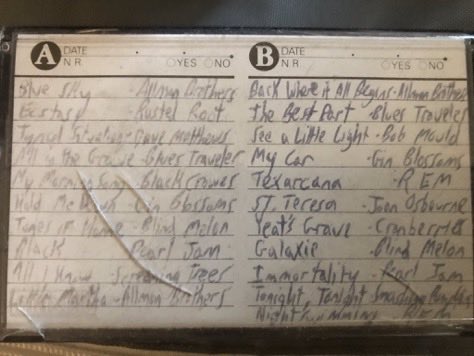 A DATE
N.R. YES NO
Blue Sky - Allman Brothers
Ecstasy - Rusted Root
Typical Situation - Dave Matthews
All in the Groove - Blues Traveler
My Morning Song - Black Crowes
Hold Me Down - Gin Blossoms
Tones of Home - Blind Melon
Black - Pearl Jam
All I Know - Screaming Trees
Little Martha - Allman Brothers
B DATE
N.R. YES NO
Back Where it All Begins - Allman Brothers
The Best Part - Blues Traveler
See a Little Light - Bob Mould
My Car - Gin Blossoms
Texarcana - REM
St. Teresa - Joan Osbourne
Yeat's Grave - Cranberries
Galaxie - Blind Melon
Immortality - Pearl Jam
Tonight, Tonight Smashing Pumpkins
Nightswimming - REM